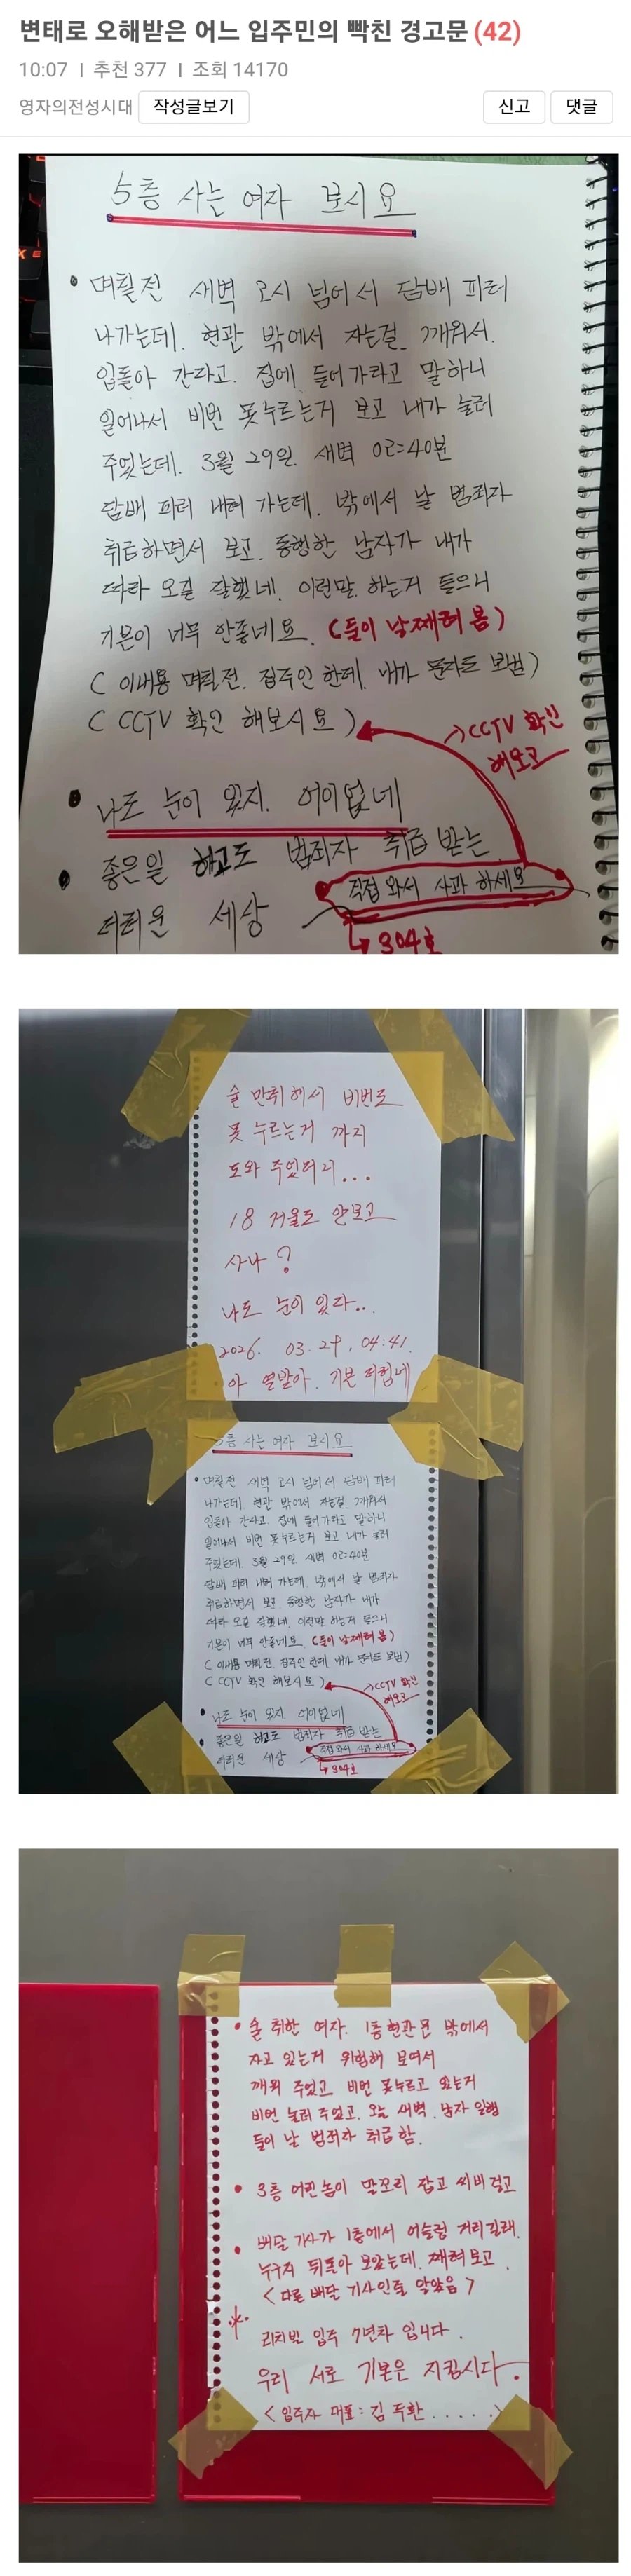 변태로 오해받은 어느 입주민의 빡친 경고문 (42)
10:07 | 추천 377 | 조회 14170
영자의전성시대 작성글보기 신고 댓글
5층 사는 여자 보시요
• 며칠전 새벽 2시 넘어서 담배 피러
나가는데. 현관 밖에서 자는걸 깨워서.
입돌아 간다고. 집에 들어가라고 말하니
일어나서 비번 못누르는거 보고 내가 눌러
주었는데. 3월 29일. 새벽 02:40분
담배 피러 내려 가는데. 밖에서 날 범죄자
취급하면서 보고. 동행한 남자가 내가
따라 오길 잘했네. 이런말. 하는거 들으니
기분이 너무 안좋네요. (둘이 날째려 봄)
( 이내용 며칠전. 집주인 한테. 내가 문자도 보냄)
( CCTV 확인 해보시요 )
→CCTV 확인
해보고
• 나도 눈이 있지. 어이없네
• 좋은일 하고도 범죄자 취급 받는
더러운 세상
직접 와서 사과 하세요
↳ 304호
술 만취 해서 비번도
못 누르는거 까지
도와 주었더니...
18 거울도 안보고
사나?
나도 눈이 있다..
2026. 03. 29. 04:41.
아 열받아. 기분 더럽네
5층 사는 여자 보시요
• 며칠전 새벽 2시 넘어서 담배 피러
나가는데. 현관 밖에서 자는걸. 깨워서
입돌아 간다고. 집에 들어가라고 말하니
일어나서 비번 못누르는거 보고 내가 눌러
주었는데. 3월 29일. 새벽 02:40분
담배 피러 내려 가는데. 밖에서 날 범죄자
취급하면서 보고. 동행한 남자가 내가
따라 오길 잘했네. 이런말 하는거 들으니
기분이 너무 안좋네요. (둘이 날째려 봄)
( 이내용 며칠전. 집주인 한테. 내가 문자도 보냄)
( CCTV 확인 해보시요 )
→CCTV 확인
해보고
• 나도 눈이 있지. 어이없네
• 좋은일 하고도 범죄자 취급 받는
더러운 세상
직접 와서 사과 하세요
↳ 304호
• 술 취한 여자. 1층현관문 밖에서
자고 있는거 위험해 보여서
깨워 주었고 비번 못누르고 있는거
비번 눌러 주었고. 오늘 새벽. 남자 일행
들이 날 범죄자 취급함.
• 3층 어린놈이 말꼬리 잡고 씨비 걸고
• 배달 기사가 1층에서 어슬렁 거리길래.
누구지 뒤돌아 보았는데. 째려보고.
< 다른 배달 기사인줄 알았음 >
* 리치빌 입주 7년차 입니다.
우리 서로 기본은 지킵시다.
< 입주자 대표 : 김 두환 ..... >